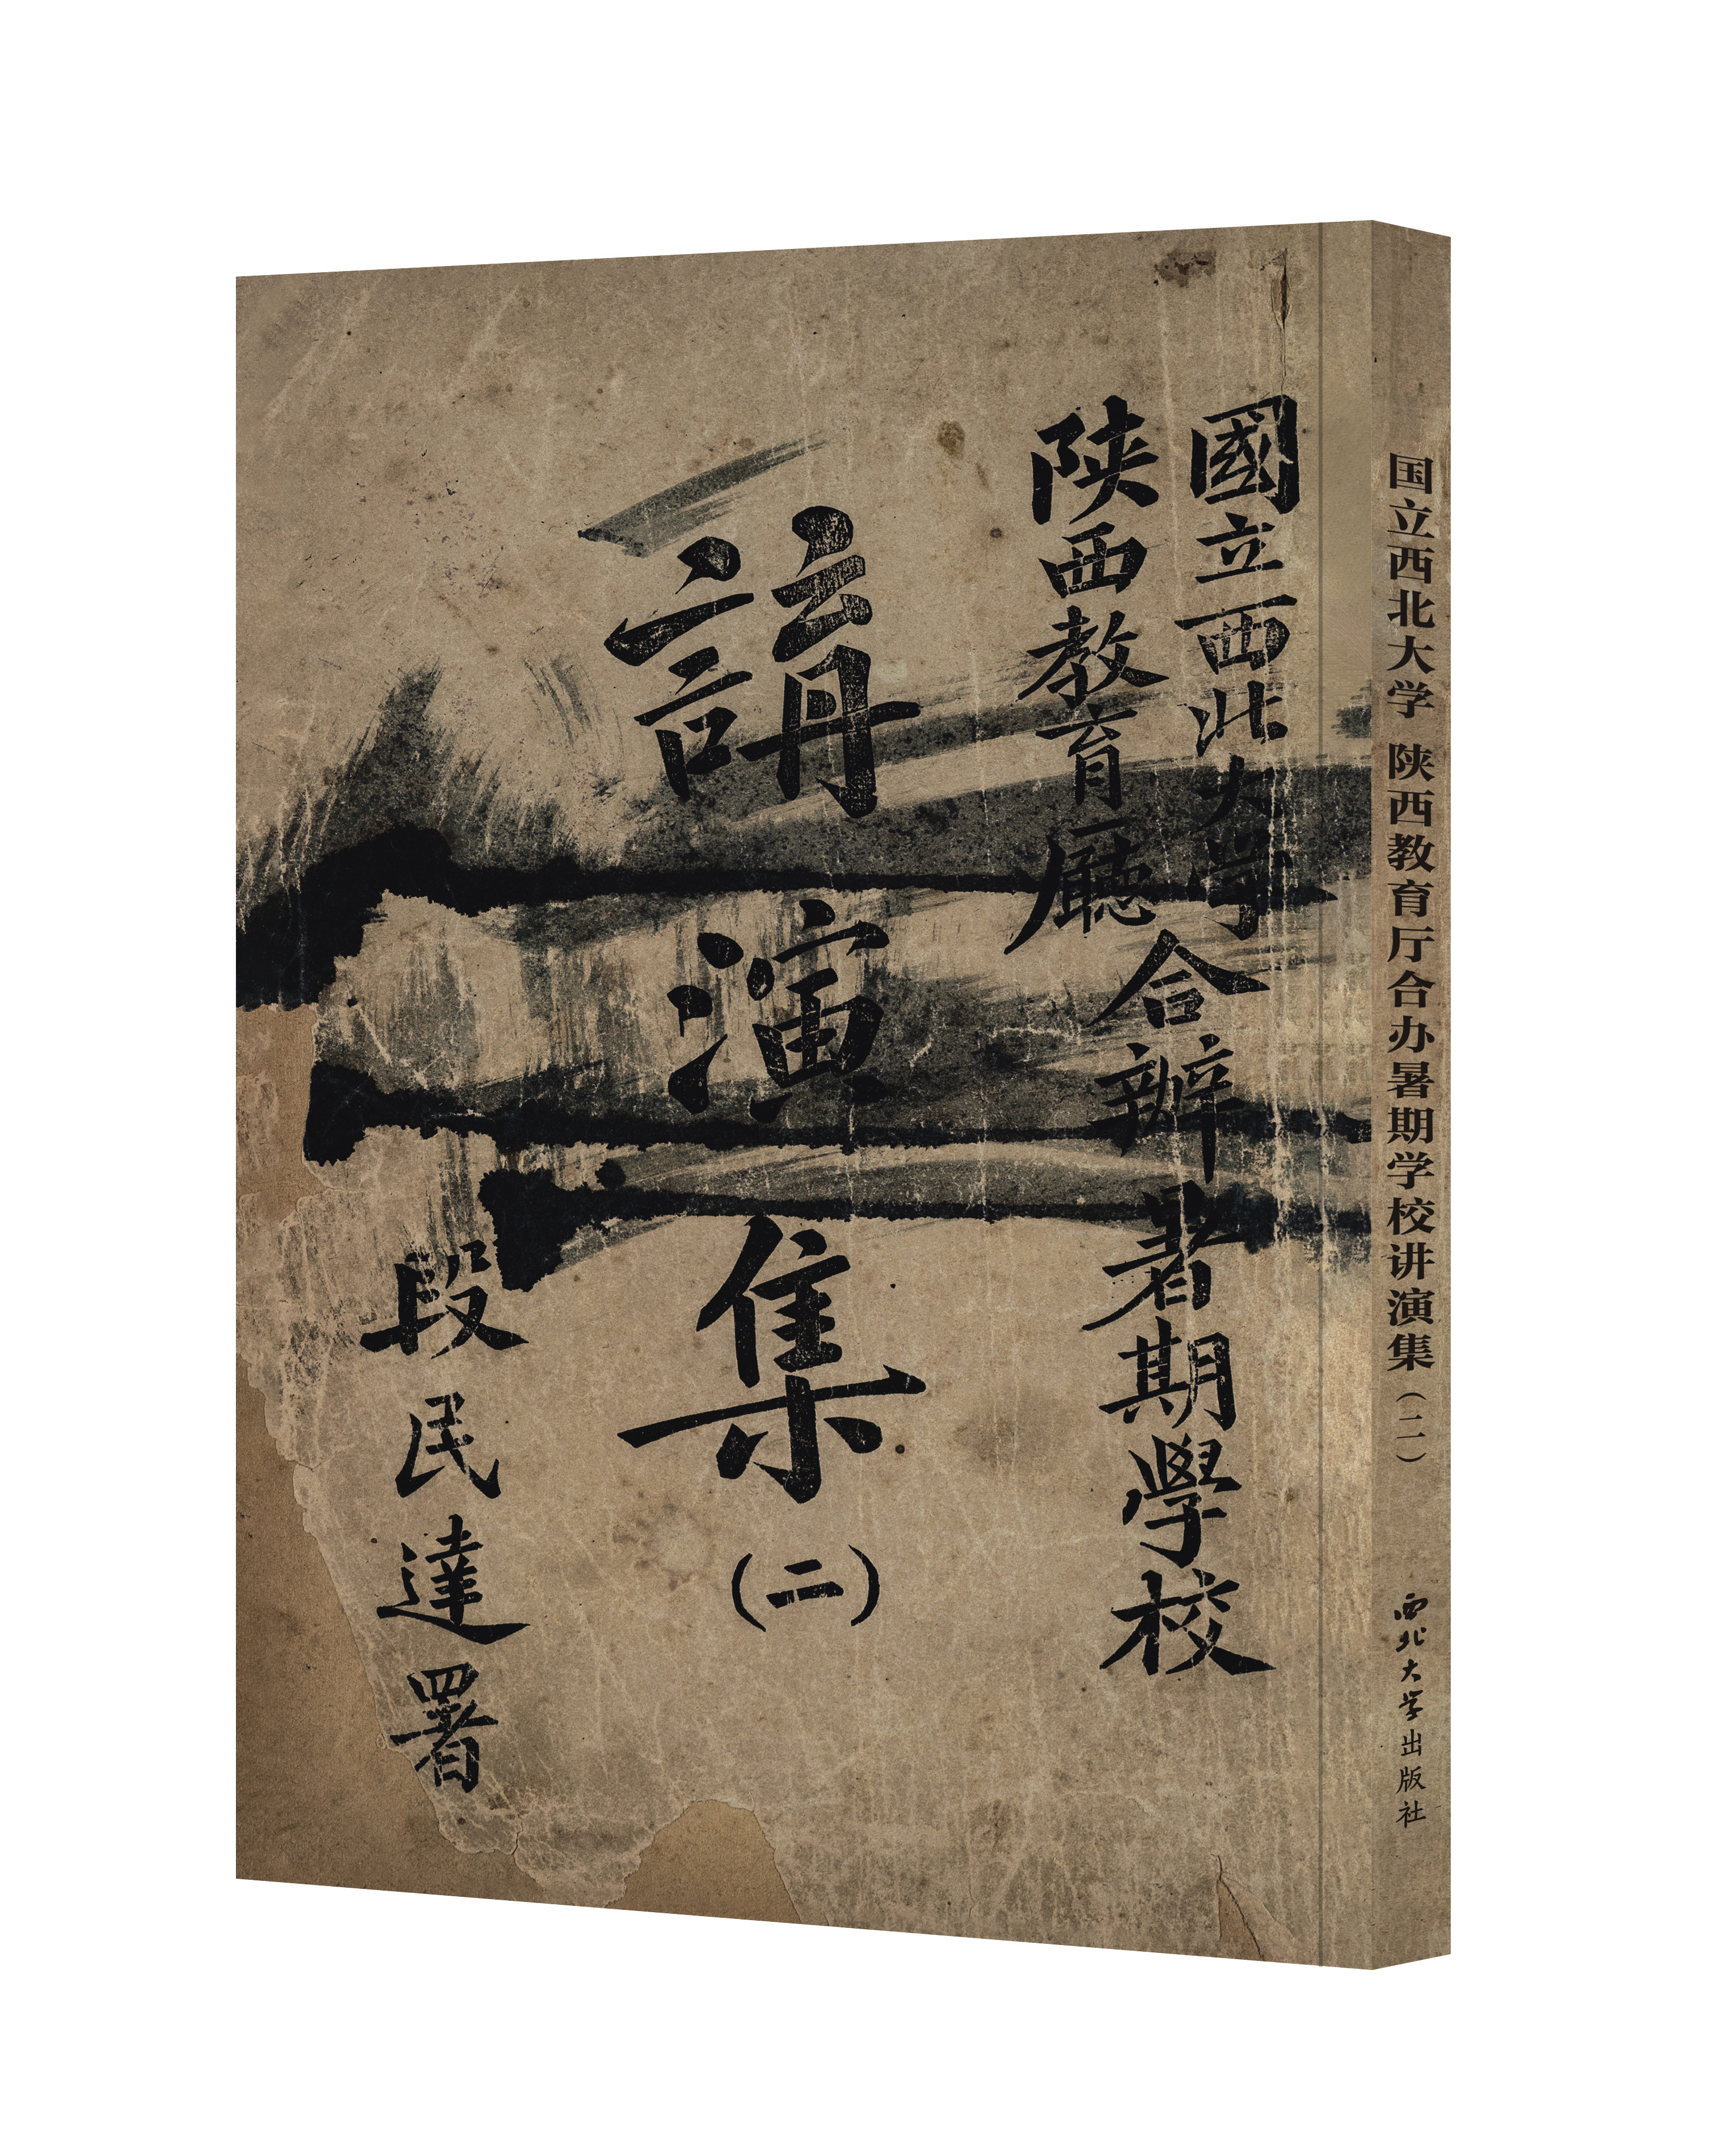 國立西北大学
陕西教育廳
合辦暑期學校
講演集
(二)
段民達署
国立西北大学 陕西教育厅合办暑期学校讲演集(二)
西北大学出版社